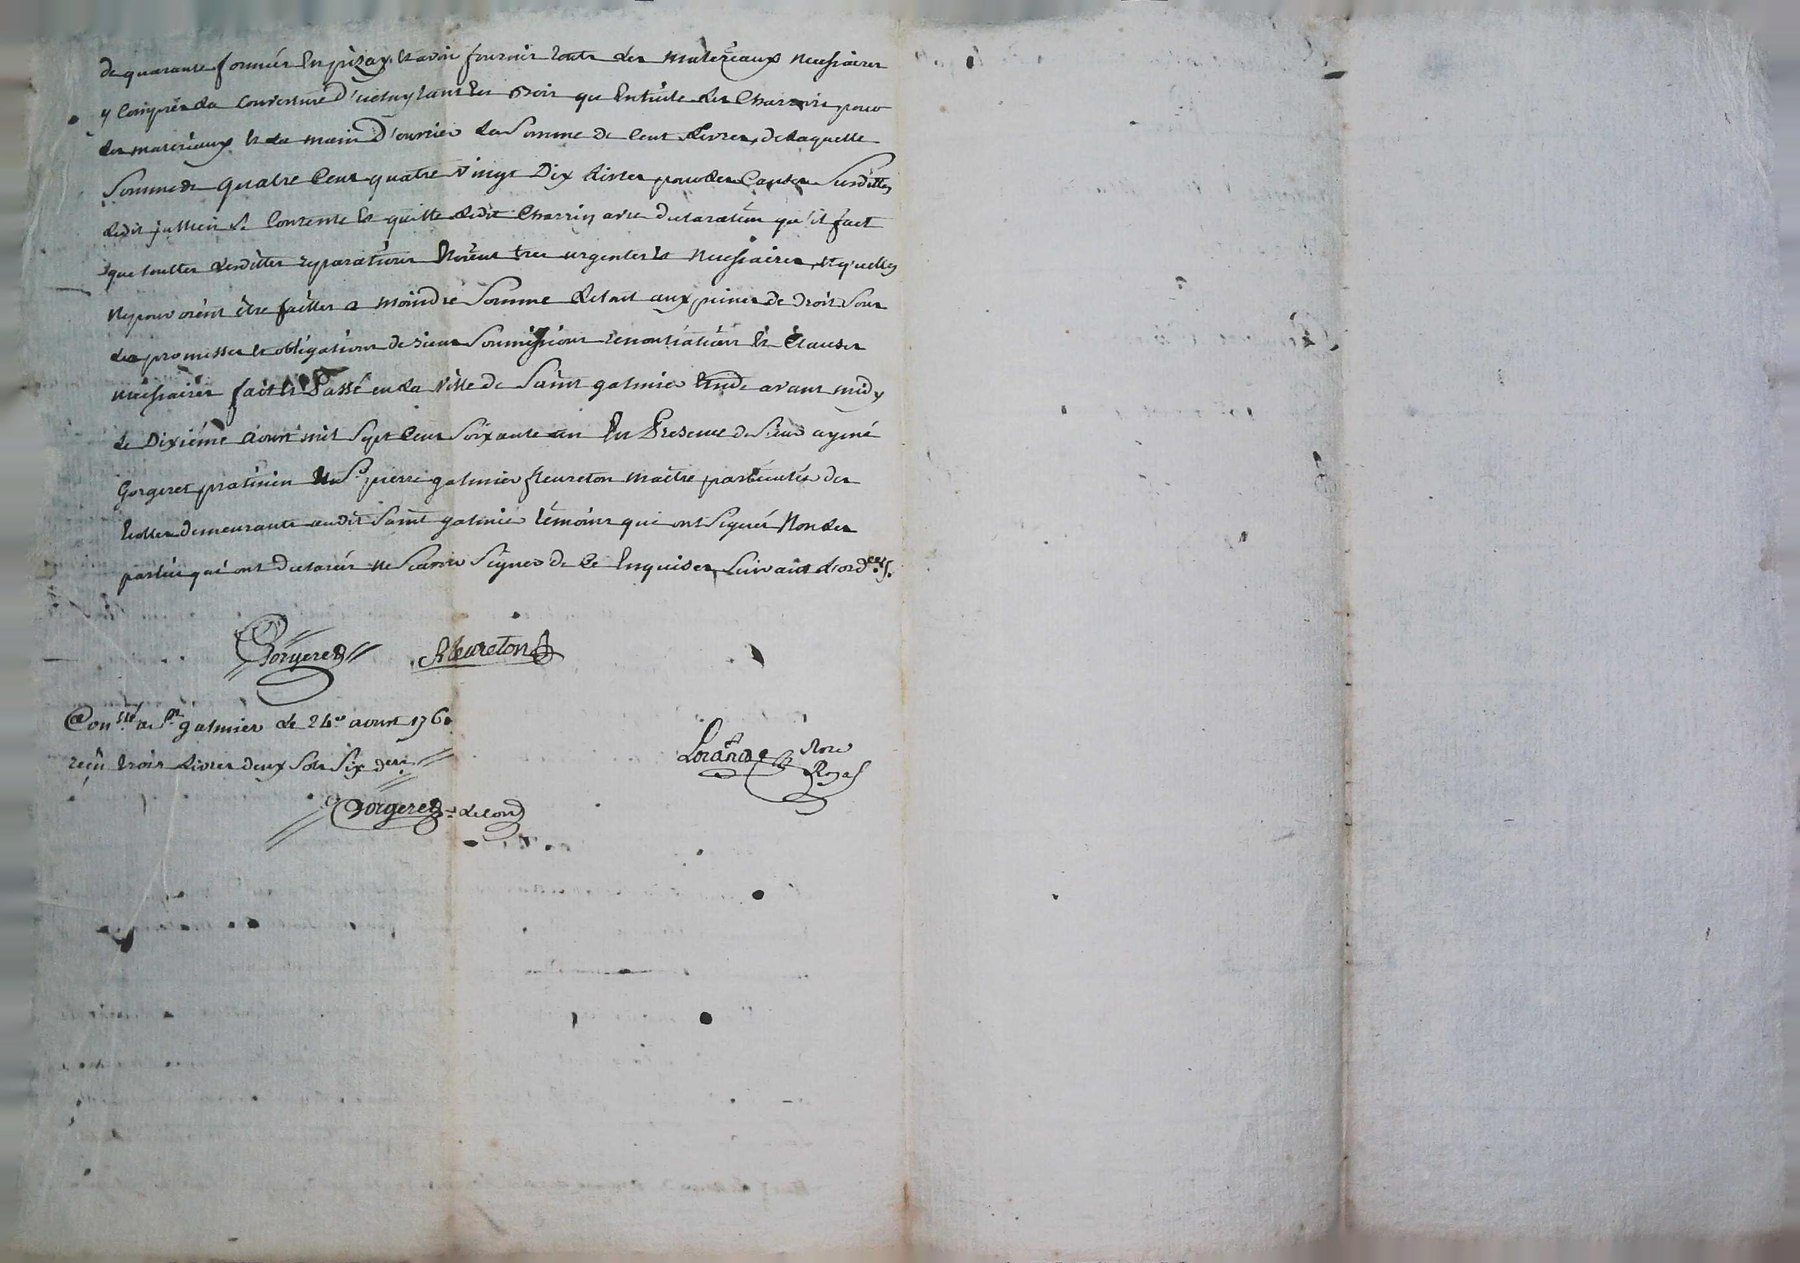 de quarante formés en pizay, et avoir fournir touts les materéaux necessaires
y Compris la Couverture d'icelluy tant en Bois qu'en tuile les Charrois pour
les materiaux et la main d'ouvrier la Somme de Cent Livres, de laquelle
Somme de quatre Cent quatre vingt Dix Livres pour les Causes Susdittes
ledit jullien Se Contente et quitte ledit Charrin avec declaration qu'il fait
que touttes lesdittes reparations Etoient tres urgentes et Necessaires, et qu'elles
Ne pouvoient être faittes a moindre Somme le tout aux peines de droit Sous
les promesses et obligations de biens Soumissions renontiations et Clauses
necessaires fait et Passé en la Ville de Saint galmier Etude avant midy
le Dixiéme avril mil Sept Cent Soixante En Presence de Sieur aymé
Gorgeret praticien et Sr pierre galmier fleureton maitre particulier des
demeurants audit Saint galmier témoins qui ont Signés Non les
parties qui ont declarés ne Scavoir Signer de Ce Enquises, Suivant L'ord.ces.
Gorgeret fleureton
Conllé a St galmier le 24e avril 1760
reçu trois Livres deux Sols Six ders
Not
Royal
Gorgeret